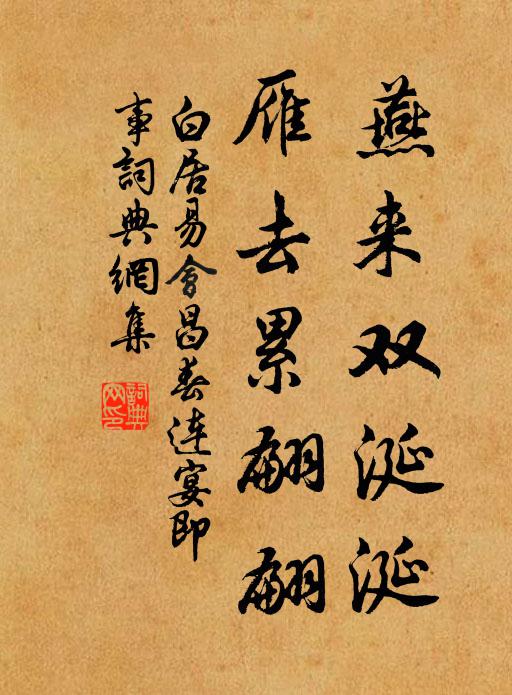 燕来双涎涎
雁去累翩翩
白居易會昌春连宴即
事詞典網集
詞典
网印